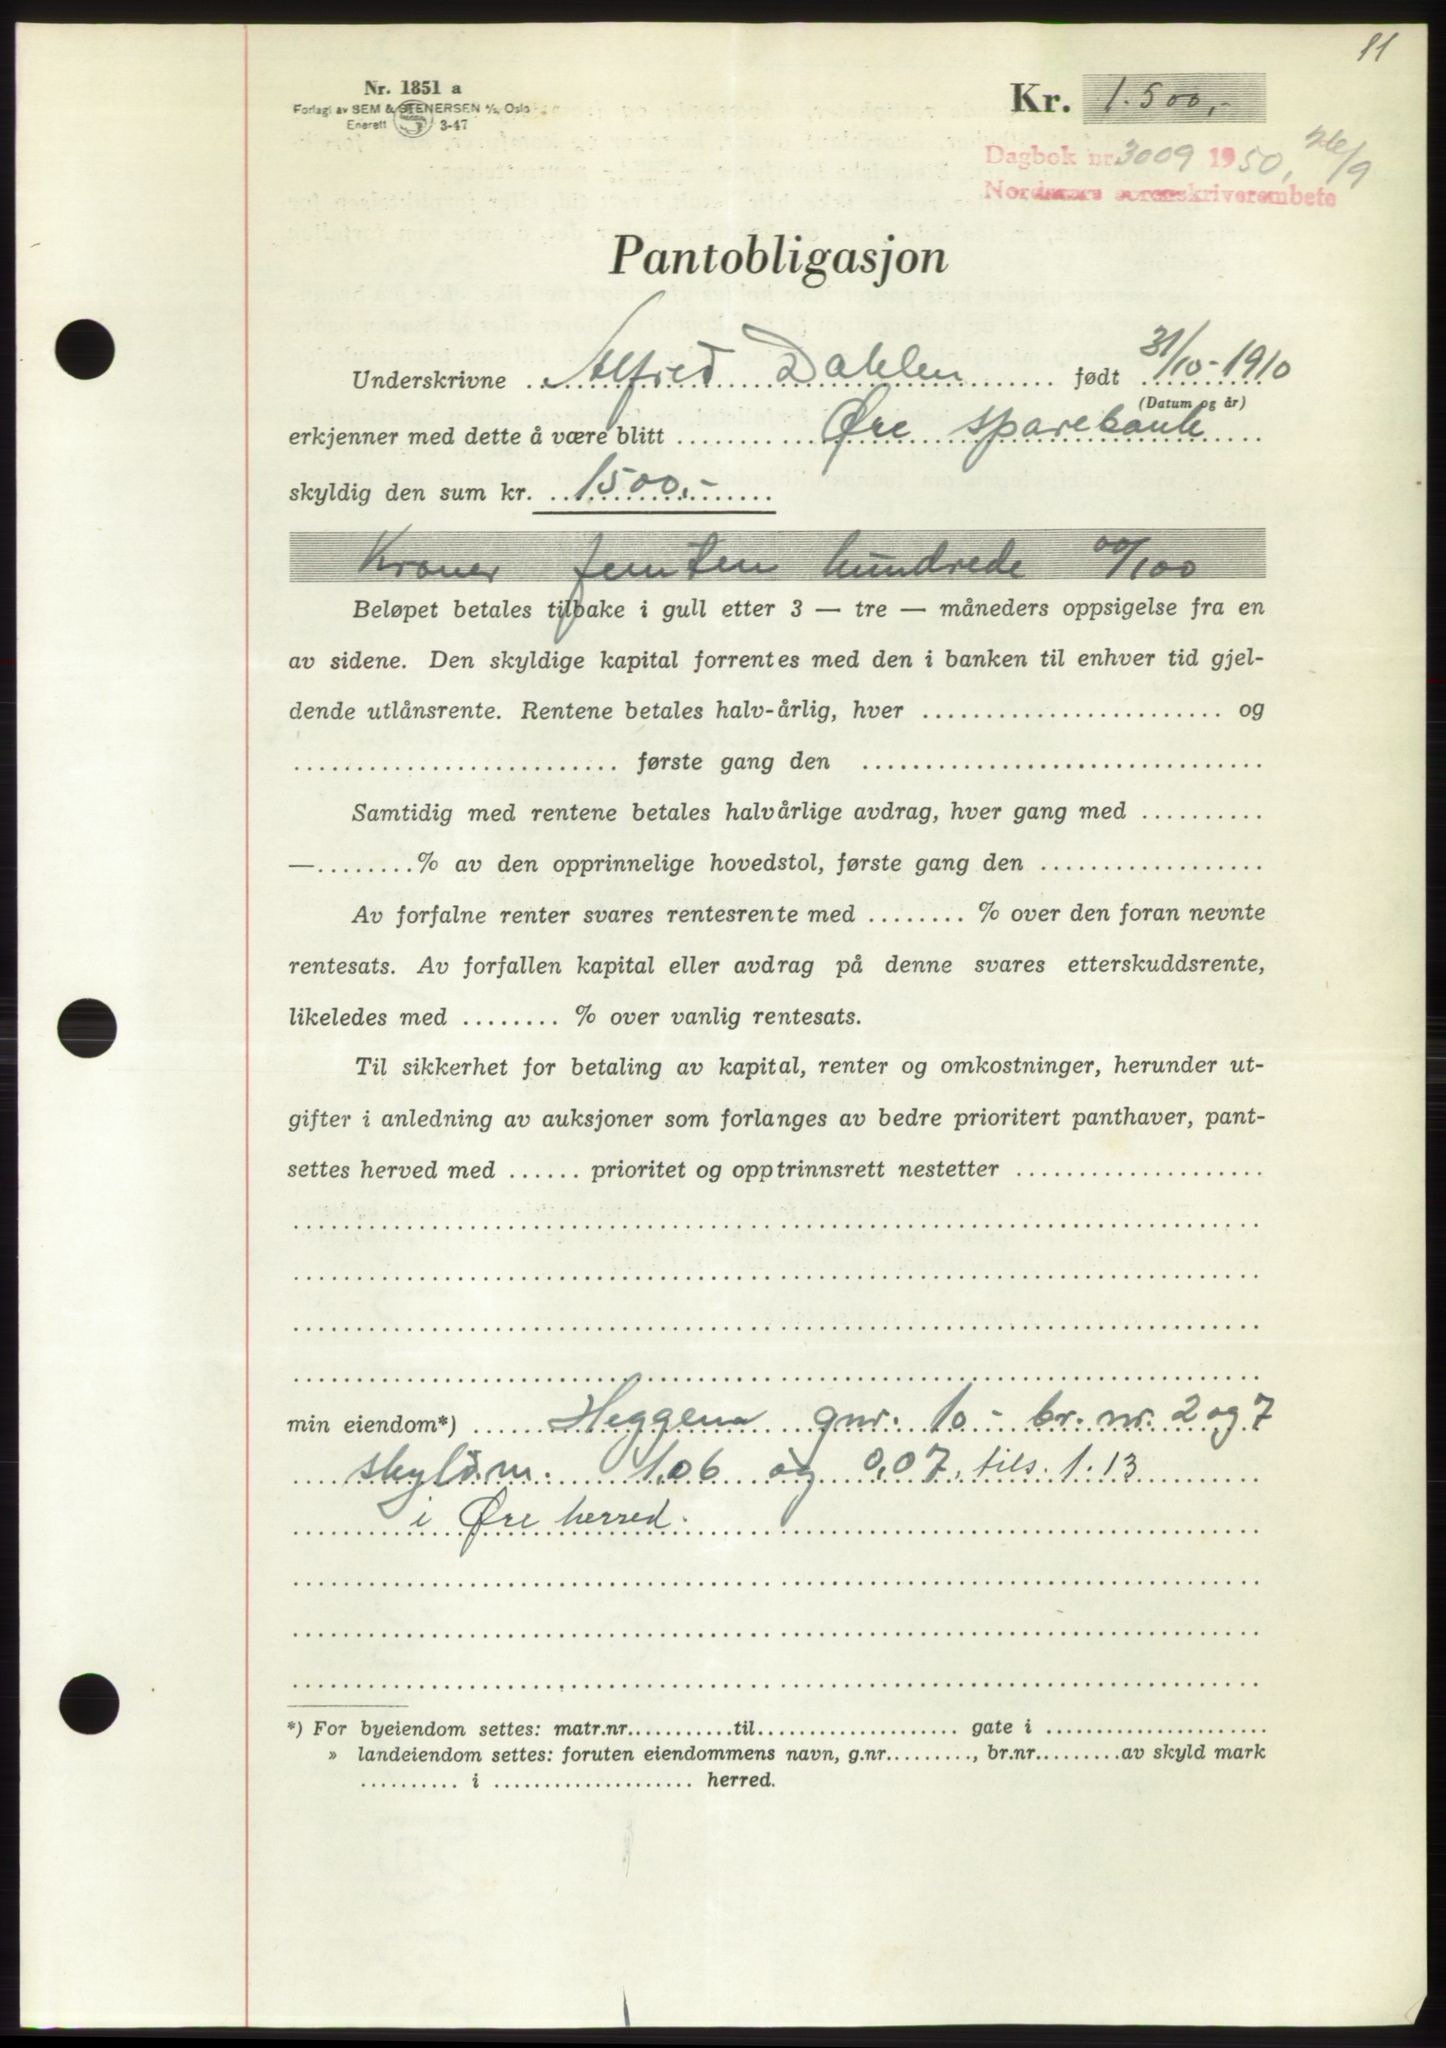 81
Nr. 1851 a
Forlagt av SEM & STENERSEN A/S, Oslo
Enerett 3-47
Kr. 1.500,-
Dagbok nr. 3009 1950, 26/9
Nordmøre sorenskriverembete
Pantobligasjon
Underskrivne Alfred Dahlen født 31/10-1910
(Datum og år)
erkjenner med dette å være blitt Øre sparebank
skyldig den sum kr. 1500,-
Kroner femten hundrede 00/100
Beløpet betales tilbake i gull etter 3 — tre — måneders oppsigelse fra en
av sidene. Den skyldige kapital forrentes med den i banken til enhver tid gjel-
dende utlånsrente. Rentene betales halv-årlig, hver ........................ og
.......................... første gang den ................................
Samtidig med rentene betales halvårlige avdrag, hver gang med ..........
—........% av den opprinnelige hovedstol, første gang den ..................
Av forfalne renter svares rentesrente med ........ % over den foran nevnte
rentesats. Av forfallen kapital eller avdrag på denne svares etterskuddsrente,
likeledes med ........ % over vanlig rentesats.
Til sikkerhet for betaling av kapital, renter og omkostninger, herunder ut-
gifter i anledning av auksjoner som forlanges av bedre prioritert panthaver, pant-
settes herved med ...... prioritet og opptrinnsrett nestetter ....................
min eiendom*) Heggem gnr. 10 - br. nr. 2 og 7
skyldm. 1,06 og 0,07, tils. 1.13
i Øre herred.
*) For byeiendom settes: matr.nr...........til.................... gate i ......................
» landeiendom settes: foruten eiendommens navn, g.nr........., br.nr.........av skyld mark
.......... i .................... herred.